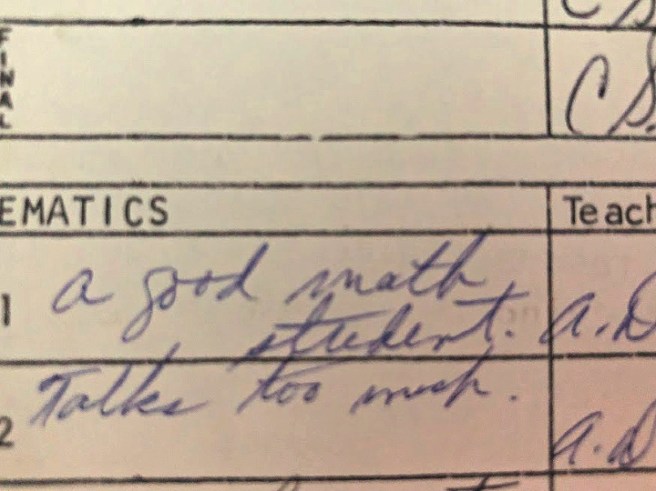 FINAL
CS
EMATICS Teach
1 a good math
student. a.D
2 Talks too much.
a.D